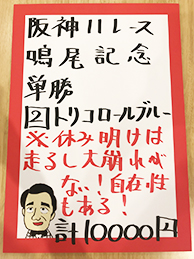 阪神11レース
鳴尾記念
単勝
2トリコロールブルー
※休み明けは
走るし大崩れが
ない！自在性
もある！
計10000円